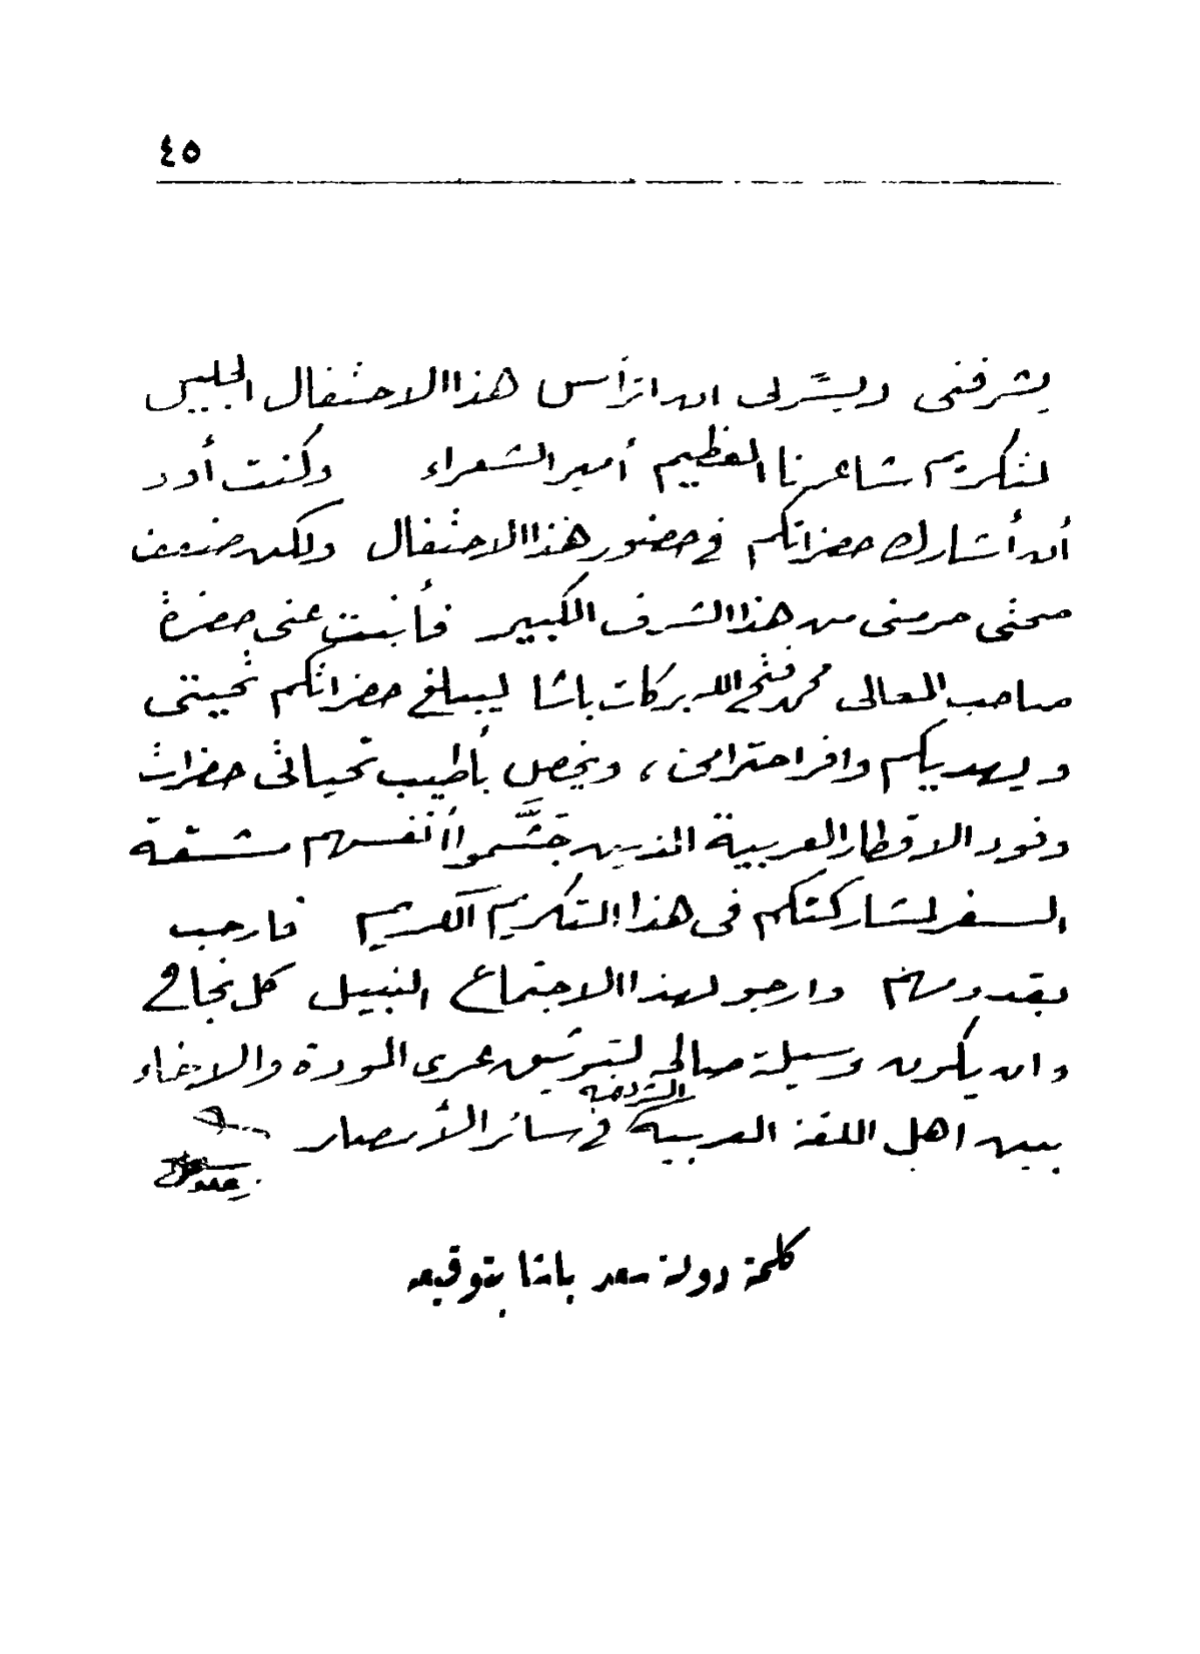 ٤٥
يشرفنى ويسَّرلى ان اترأس هذا الاحتفال الجليل
لتكريم شاعرنا العظيم أمير الشعراء وكنت أود
أن أشارك حضراتكم في حضور هذا الاحتفال ولكن ضعف
صحتى حرمنى من هذا الشرف الكبير فأنبت عنى حضرة
صاحب المعالى محمد فتح الله بركات باشا ليبلغ حضراتكم تحيتى
ويهديكم وافر احترامى، ويخص بأطيب تحياتى حضرات
وفود الاقطار العربية الذين جَشَّموا أنفسهم مشقة
السفر لمشاركتكم فى هذا التكريم الكريم فارحب
بقدومهم وارجو لهذا الاجتماع النبيل كل نجاح
وان يكون وسيلة صالحة لتوثيق عرى المودة والاخاء
بين اهل اللغة العربية الشريفة في سائر الأمصار
سعد زغلول
كلمة دولة سعد باشا بتوقيعه